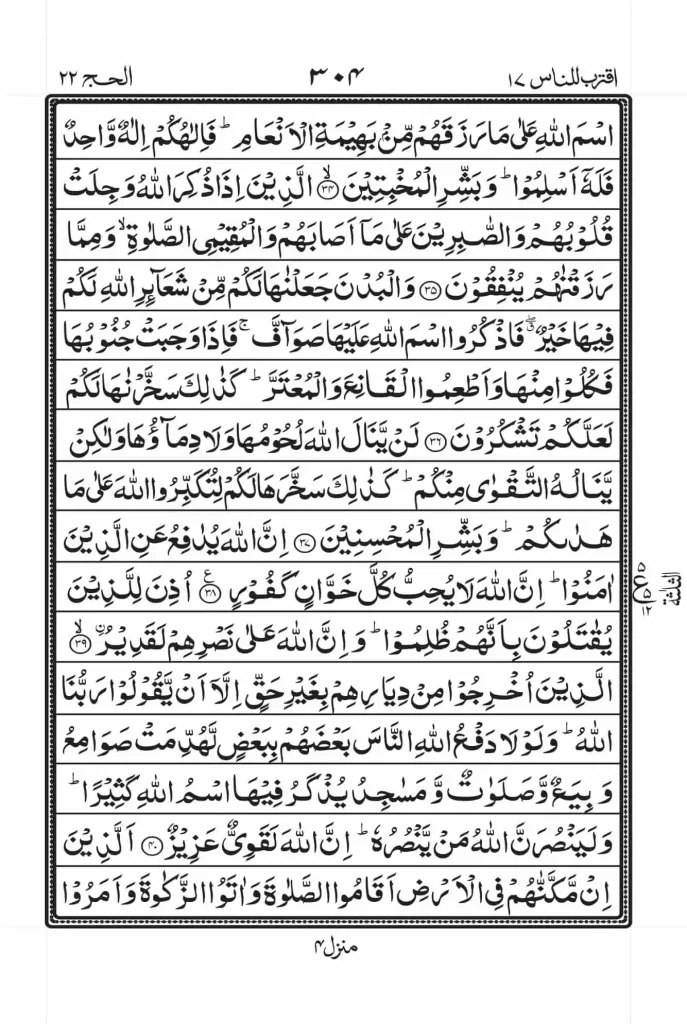 اقترب للناس ۱۷ ۳۰۴ الحج ۲۲
اسْمَ اللّٰهِ عَلٰی مَا رَزَقَهُمْ مِّنْۢ بَهِیْمَةِ الْاَنْعَامِ ؕ فَاِلٰهُكُمْ اِلٰهٌ وَّاحِدٌ
فَلَهٗۤ اَسْلِمُوْا ؕ وَبَشِّرِ الْمُخْبِتِیْنَ ۙ﴿۳۴﴾ الَّذِیْنَ اِذَا ذُكِرَ اللّٰهُ وَجِلَتْ
قُلُوْبُهُمْ وَالصّٰبِرِیْنَ عَلٰی مَاۤ اَصَابَهُمْ وَالْمُقِیْمِی الصَّلٰوةِ ۙ وَمِمَّا
رَزَقْنٰهُمْ یُنْفِقُوْنَ ﴿۳۵﴾ وَالْبُدْنَ جَعَلْنٰهَا لَكُمْ مِّنْ شَعَآئِرِ اللّٰهِ لَكُمْ
فِیْهَا خَیْرٌ ۖۗ فَاذْكُرُوا اسْمَ اللّٰهِ عَلَیْهَا صَوَآفَّ ۚ فَاِذَا وَجَبَتْ جُنُوْبُهَا
فَكُلُوْا مِنْهَا وَاَطْعِمُوا الْقَانِعَ وَالْمُعْتَرَّ ؕ كَذٰلِكَ سَخَّرْنٰهَا لَكُمْ
لَعَلَّكُمْ تَشْكُرُوْنَ ﴿۳۶﴾ لَنْ یَّنَالَ اللّٰهَ لُحُوْمُهَا وَلَا دِمَآؤُهَا وَلٰكِنْ
یَّنَالُهُ التَّقْوٰی مِنْكُمْ ؕ كَذٰلِكَ سَخَّرَهَا لَكُمْ لِتُكَبِّرُوا اللّٰهَ عَلٰی مَا
هَدٰىكُمْ ؕ وَبَشِّرِ الْمُحْسِنِیْنَ ﴿۳۷﴾ اِنَّ اللّٰهَ یُدٰفِعُ عَنِ الَّذِیْنَ
اٰمَنُوْا ؕ اِنَّ اللّٰهَ لَا یُحِبُّ كُلَّ خَوَّانٍ كَفُوْرٍ ﴿۳۸﴾ع اُذِنَ لِلَّذِیْنَ
ع ۵ ۵ ۱۲ الثلثة
یُقٰتَلُوْنَ بِاَنَّهُمْ ظُلِمُوْا ؕ وَاِنَّ اللّٰهَ عَلٰی نَصْرِهِمْ لَقَدِیْرُ ۙ﴿۳۹﴾
الَّذِیْنَ اُخْرِجُوْا مِنْ دِیَارِهِمْ بِغَیْرِ حَقٍّ اِلَّاۤ اَنْ یَّقُوْلُوْا رَبُّنَا
اللّٰهُ ؕ وَلَوْلَا دَفْعُ اللّٰهِ النَّاسَ بَعْضَهُمْ بِبَعْضٍ لَّهُدِّمَتْ صَوَامِعُ
وَبِیَعٌ وَّصَلَوٰتٌ وَّمَسٰجِدُ یُذْكَرُ فِیْهَا اسْمُ اللّٰهِ كَثِیْرًا ؕ
وَلَیَنْصُرَنَّ اللّٰهُ مَنْ یَّنْصُرُهٗ ؕ اِنَّ اللّٰهَ لَقَوِیٌّ عَزِیْزٌ ﴿۴۰﴾ اَلَّذِیْنَ
اِنْ مَّكَّنّٰهُمْ فِی الْاَرْضِ اَقَامُوا الصَّلٰوةَ وَاٰتَوُا الزَّكٰوةَ وَاَمَرُوْا
منزل۴